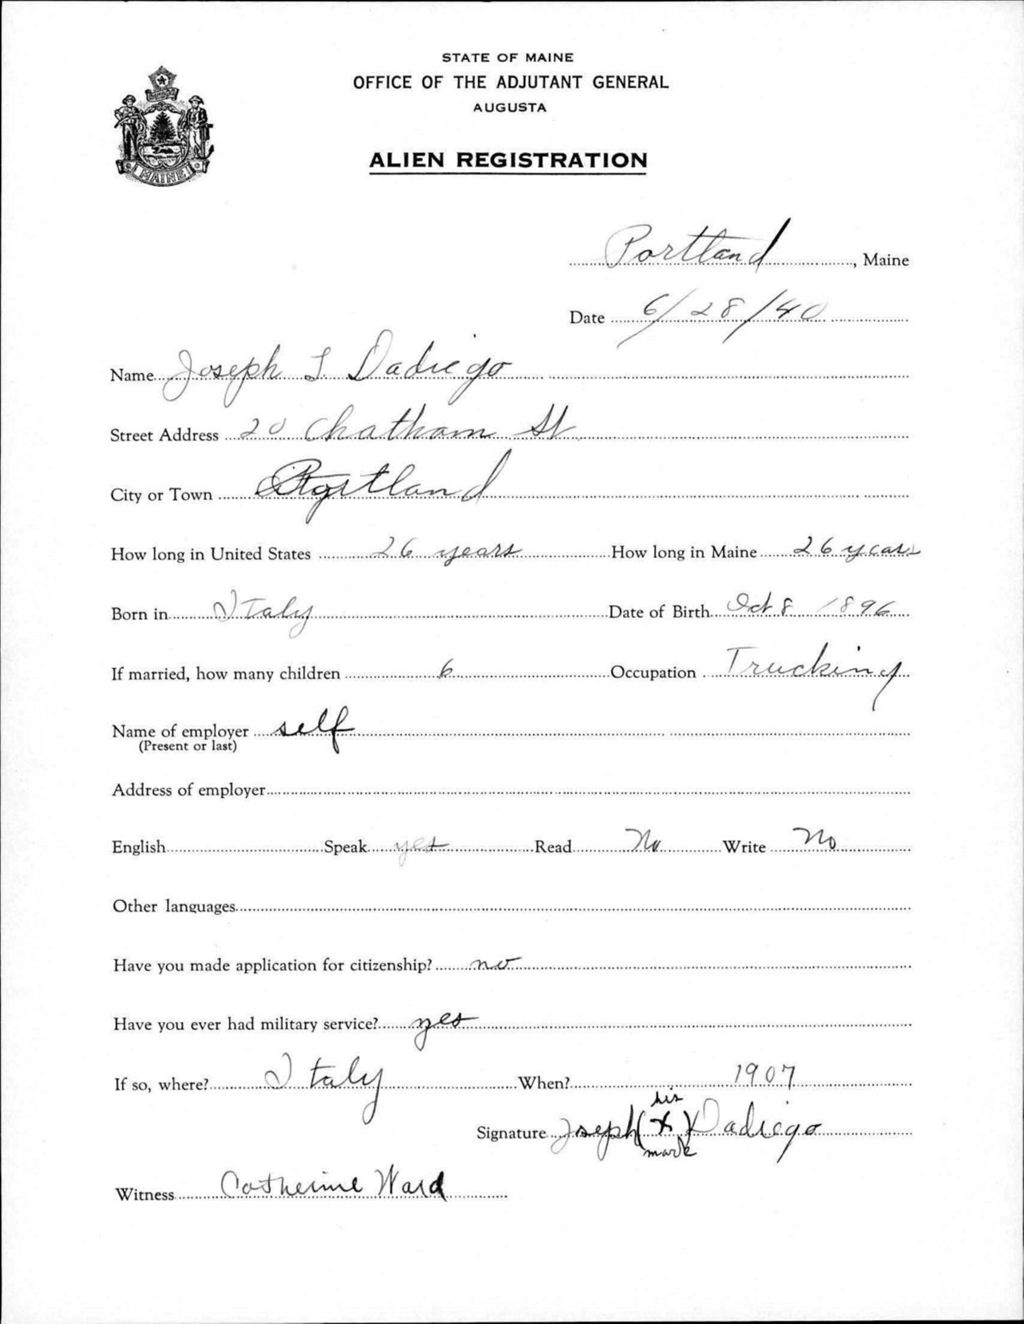 STATE OF MAINE
OFFICE OF THE ADJUTANT GENERAL
AUGUSTA
ALIEN REGISTRATION
MAINE
Portland, Maine
Date 6/28/40
Name Joseph I Dadiego
Street Address 20 Chatham St
City or Town Portland
How long in United States 26 years How long in Maine 26 years
Born in Italy Date of Birth Oct 8 1896
If married, how many children 6 Occupation Trucking
Name of employer self
(Present or last)
Address of employer
English Speak yes Read No Write No
Other languages
Have you made application for citizenship? no
Have you ever had military service? yes
If so, where? Italy When? 1907
his
Signature Joseph (X) Dadiego
mark
Witness Catherine Ward